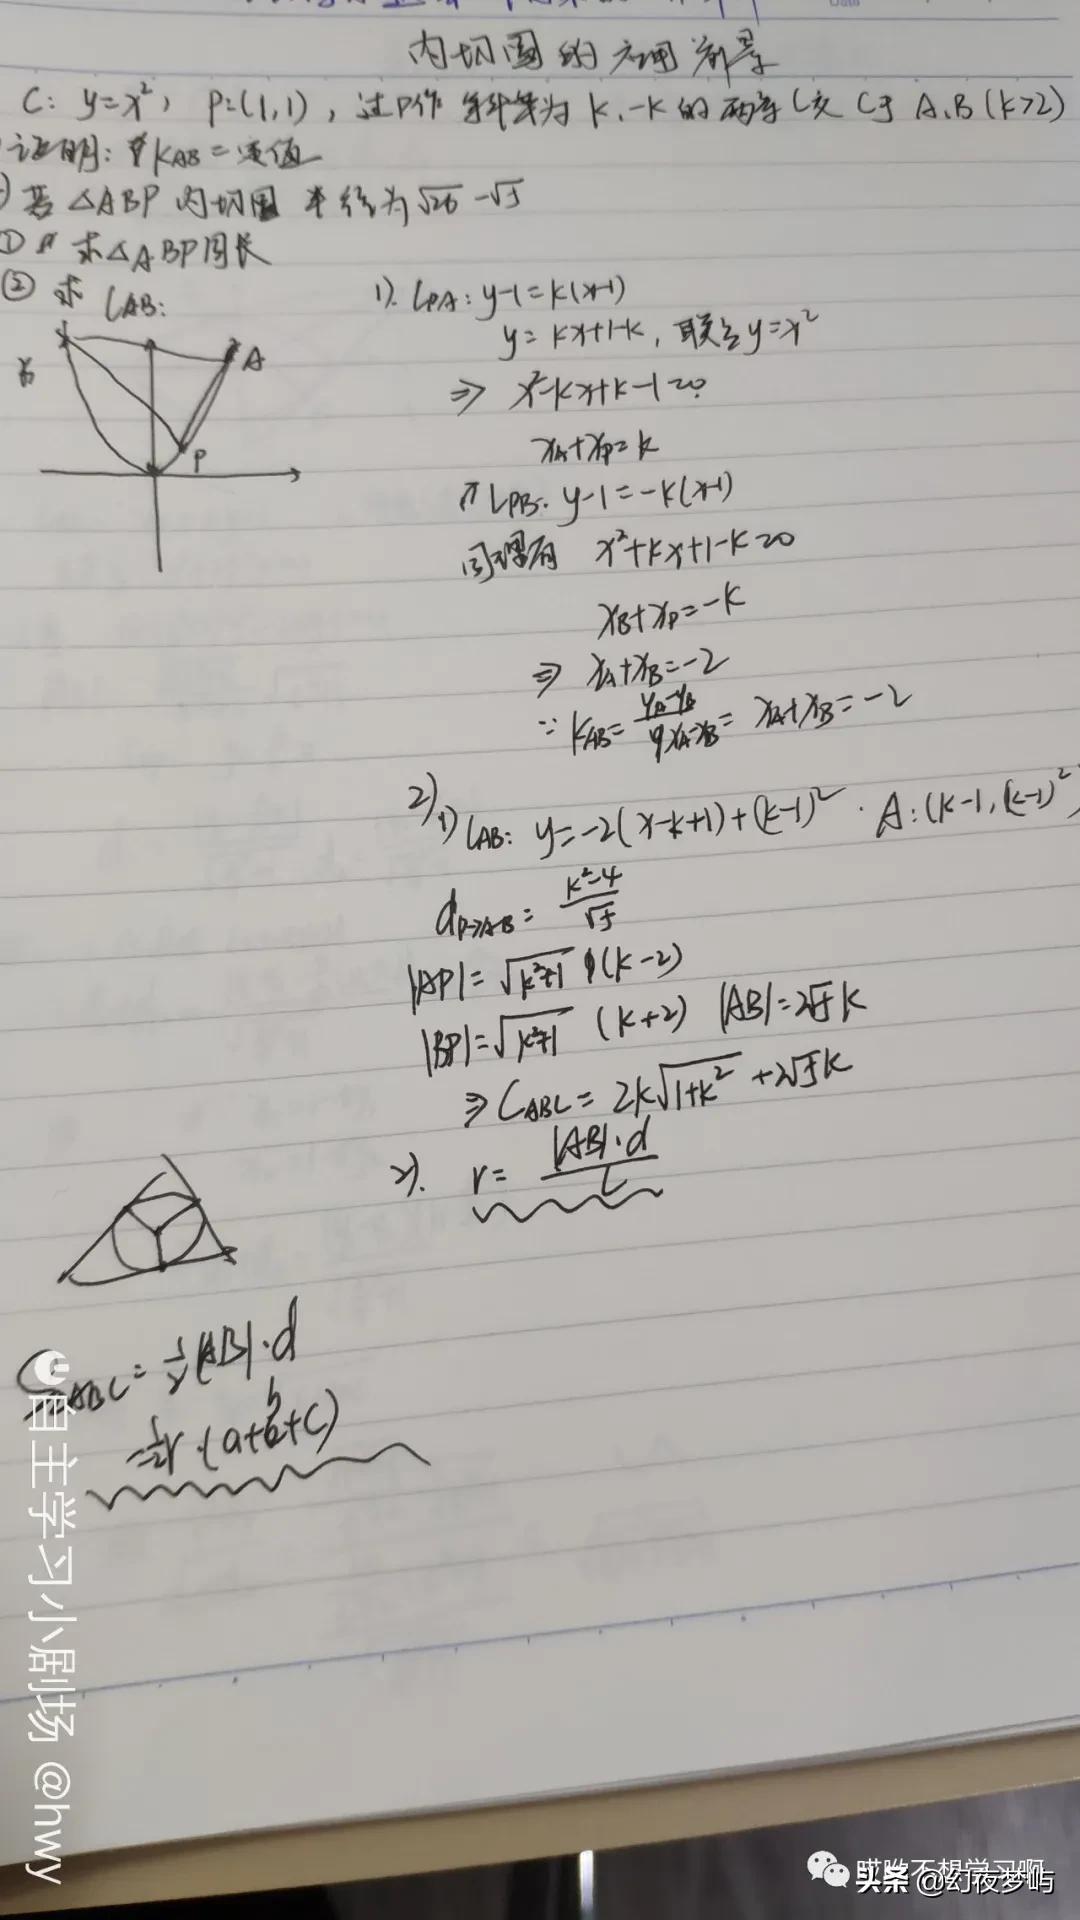 内切圆的应用背景
C: y=x², P=(1,1), 过P作斜率为k,-k的两条L交C于A,B(k>2)
证明: k_AB=定值
若△ABP内切圆半径为√26-√5
① 求△ABP周长
② 求 L_AB:
A
P
1). L_PA: y-1=k(x-1)
y=kx+1-k, 联立y=x²
⇒ x²-kx+k-1=0
x_A+x_P=k
L_PB: y-1=-k(x-1)
同理有 x²+kx+1-k=0
x_B+x_P=-k
⇒ x_A+x_B=-2
∵ k_AB=(y_A-y_B)/(x_A-x_B)=x_A+x_B=-2
2) 1) L_AB: y=-2(x-k+1)+(k-1)². A:(k-1,(k-1)²)
d_P→AB=(k²-4)/√5
|AP|=√(k²+1) (k-2)
|BP|=√(k²+1) (k+2) |AB|=2√5k
⇒ C_ABC=2k√(1+k²)+2√5k
2). r=|AB|·d/C
S_ABC=½|AB|·d
=½r·(a+b+c)
自主学习小剧场 @hwy
哎哟不想学习啊
头条 @幻夜梦屿